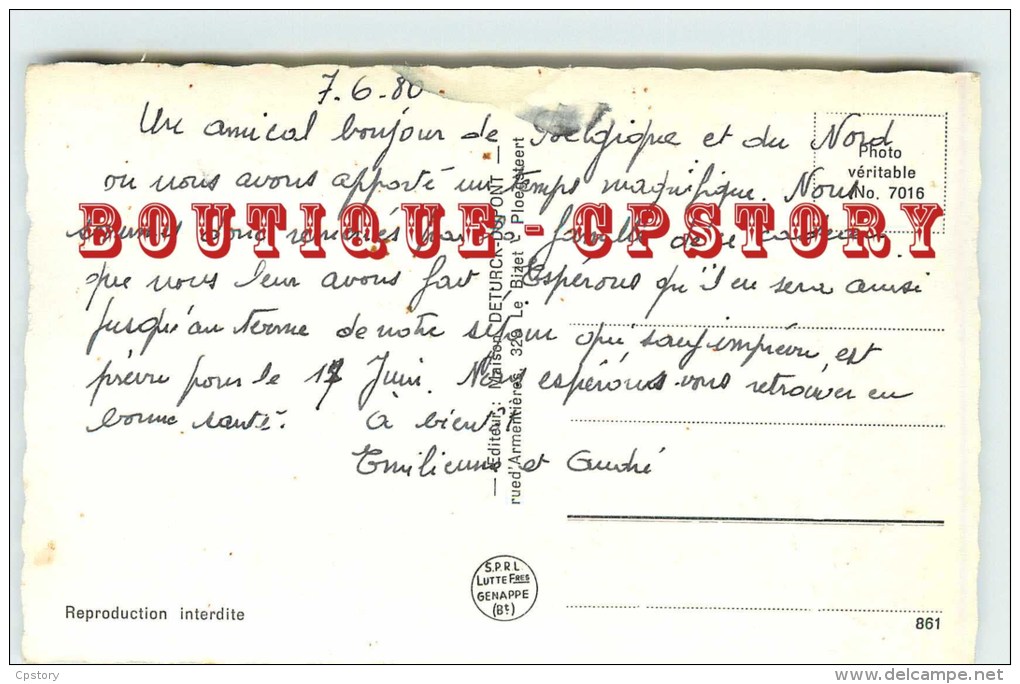 7.6.80
Un amical bonjour de Belgique et du Nord
ou nous avons apporté un temps magnifique. Nous
BOUTIQUE - CPSTORY
que nous leur avons fait. Espérons qu'il en sera ainsi
jusqu'au terme de notre séjour qui sauf imprévu est
prévu pour le 17 Juin. Nous espérons vous retrouver en
bonne santé. à bientôt
Emilienne et André
Photo
véritable
No. 7016
— Editeur : Maison DETURCK-DUPONT —
rue d'Armentières, 320 Le Bizet Ploegsteert
S.P.R.L
LUTTE FRES
GENAPPE
(Bt)
Reproduction interdite
861
Cpstory
http://www.delcampe.net